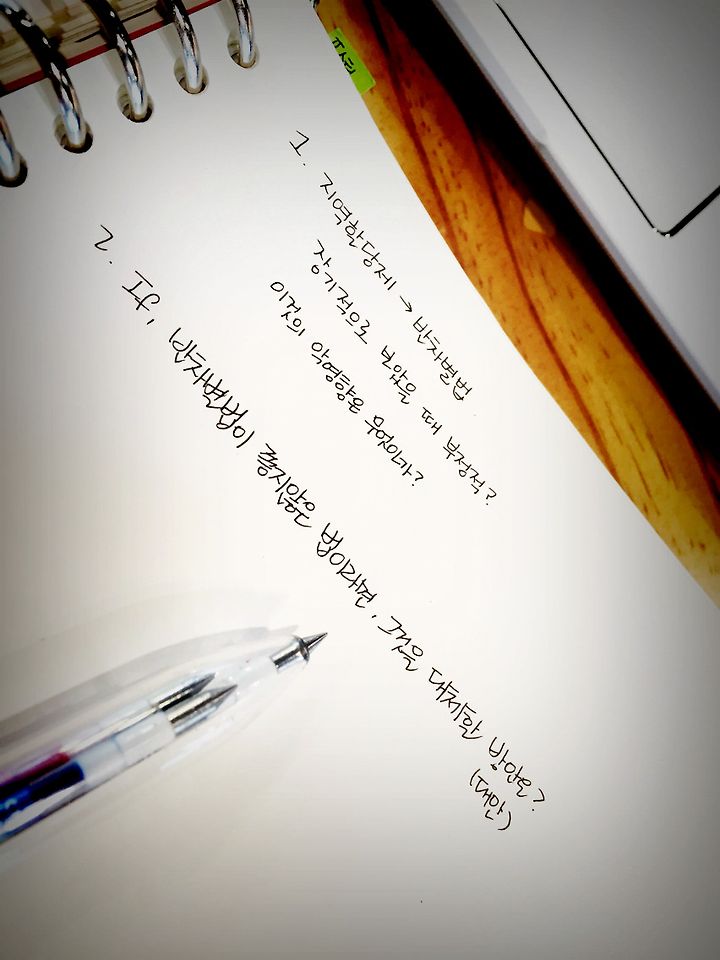 1. 지역할당제 → 반차별법
장기적으로 보았을 때 부정적?
이것의 악영향은 무엇인가?
2. If, 반차별법이 좋지않은 법이라면, 그것을 대체할 방안은?
(대안)